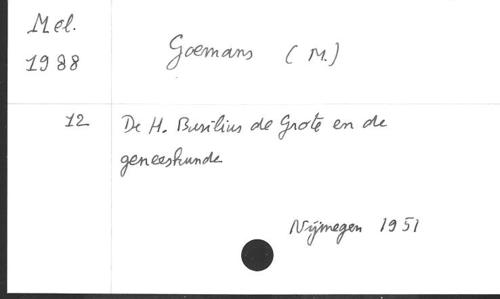 Mel.
1988
Goemans (M.)
12
De H. Basilius de Grote en de
geneeskunde
Nijmegen 1951